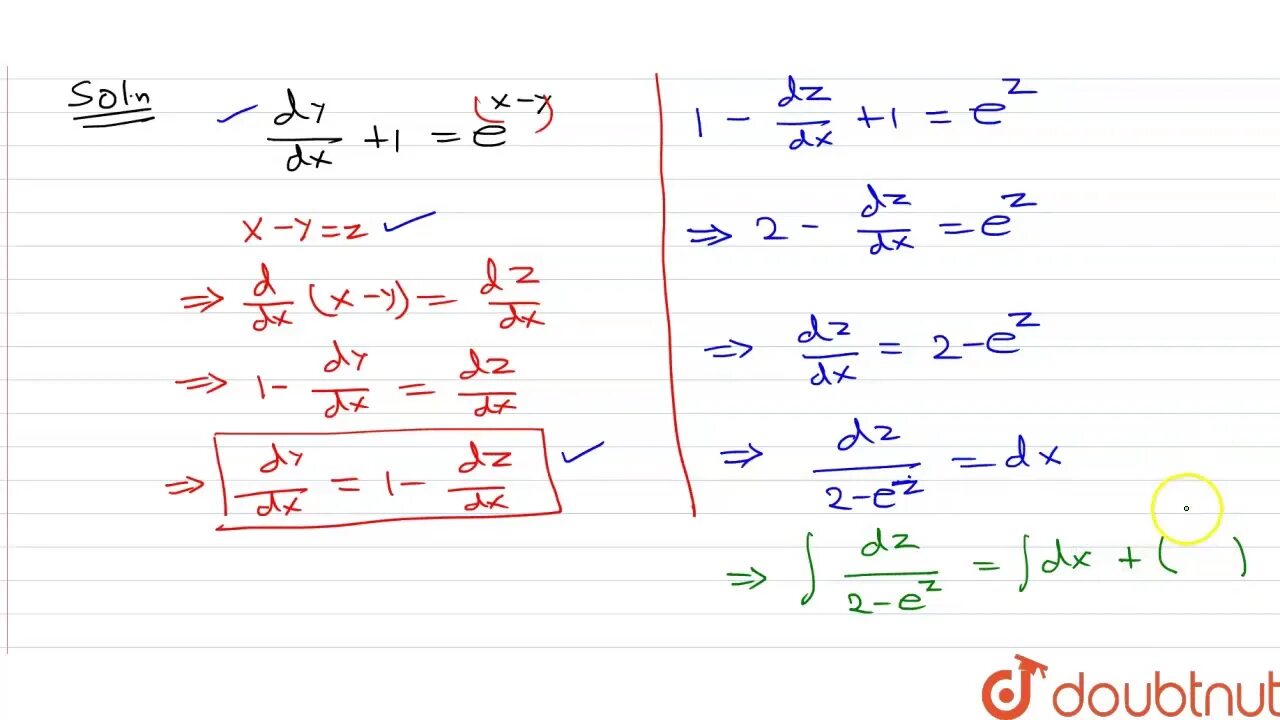 Soln
dy/dx + 1 = e^(x-y)
x - y = z
⇒ d/dx (x - y) = dz/dx
⇒ 1 - dy/dx = dz/dx
⇒ dy/dx = 1 - dz/dx
1 - dz/dx + 1 = e^z
⇒ 2 - dz/dx = e^z
⇒ dz/dx = 2 - e^z
⇒ dz/(2 - e^z) = dx
⇒ ∫ dz/(2 - e^z) = ∫ dx + ( )
doubtnut